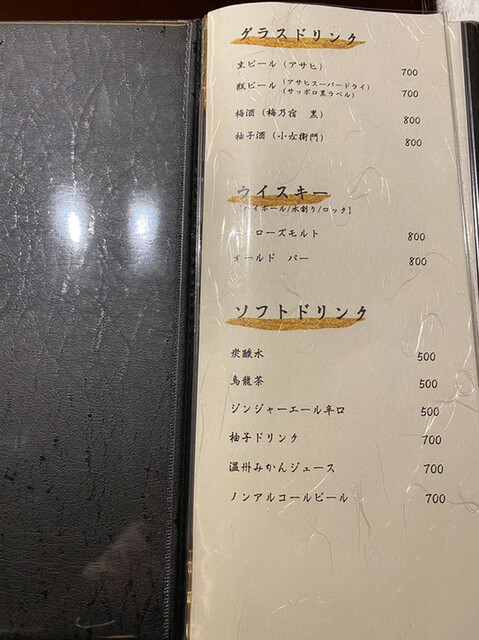 グラスドリンク
生ビール（アサヒ） 700
瓶ビール（アサヒスーパードライ）（サッポロ黒ラベル） 700
梅酒（梅乃宿　黒） 800
柚子酒（小左衛門） 800
ウイスキー
【ハイボール/水割り/ロック】
ローズモルト 800
オールド　パー 800
ソフトドリンク
炭酸水 500
烏龍茶 500
ジンジャーエール辛口 500
柚子ドリンク 700
温州みかんジュース 700
ノンアルコールビール 700